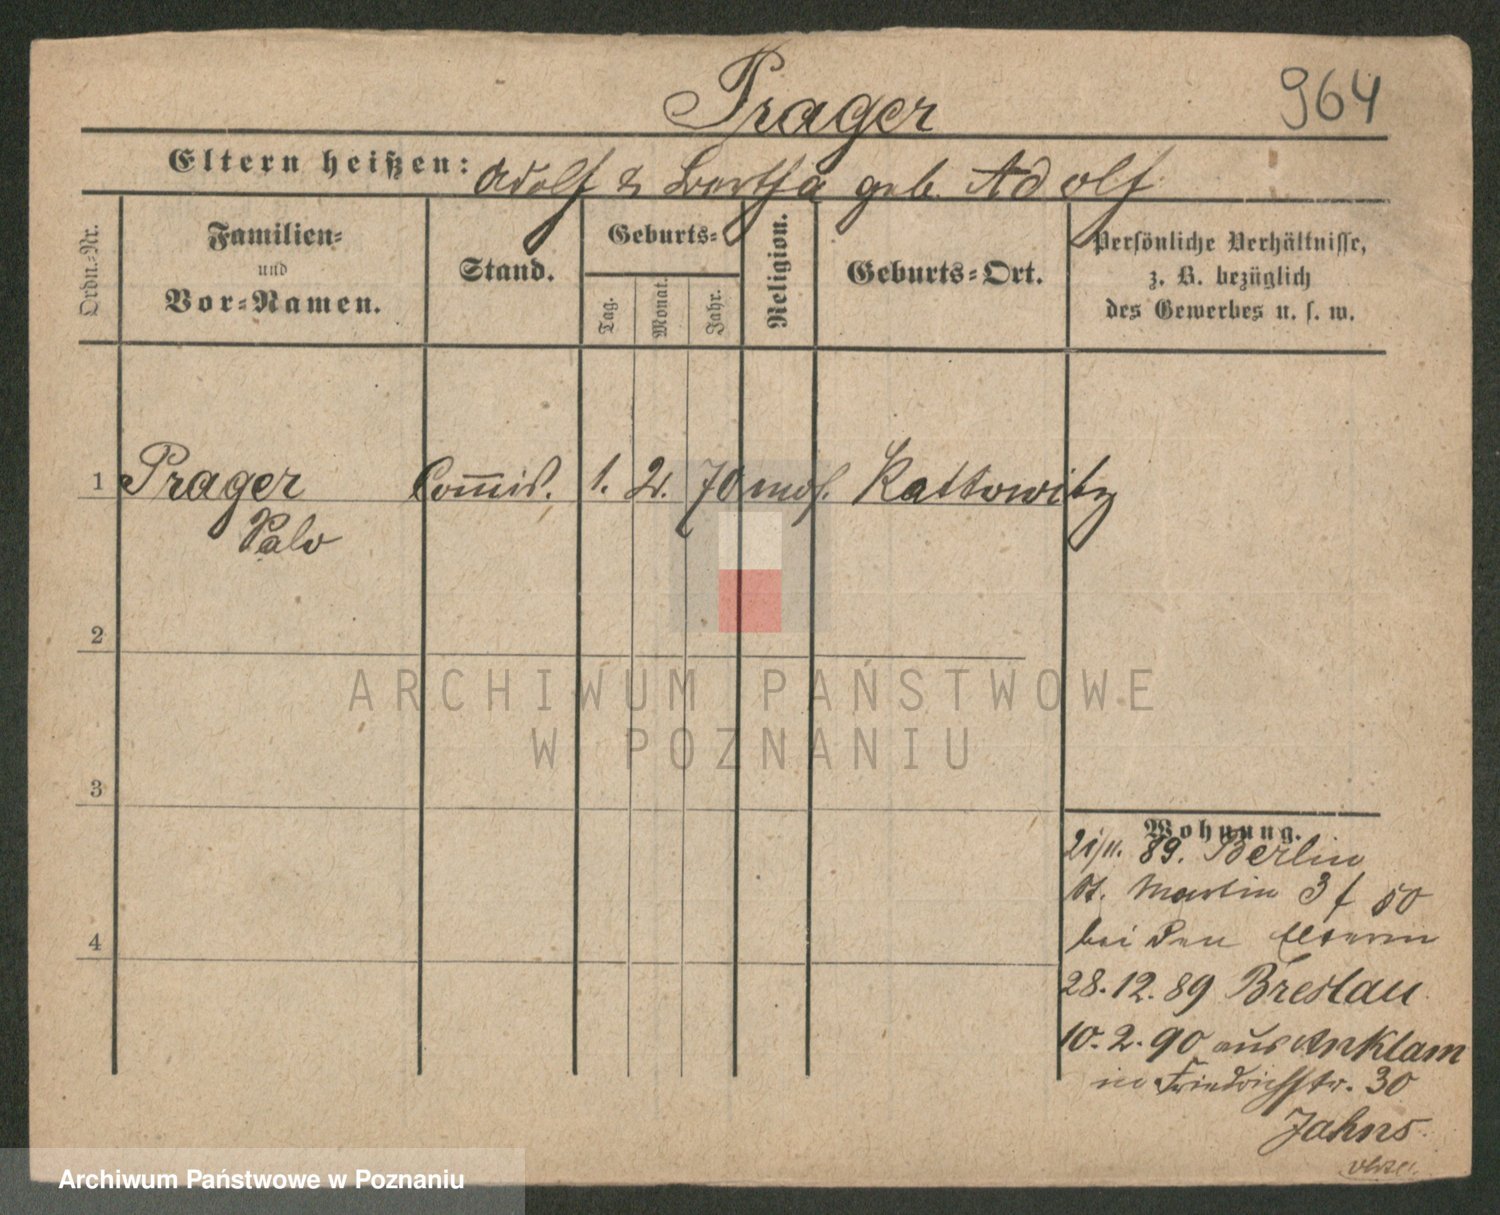 Prager
964
Eltern heißen: Adolf & Bertha geb. Adolf
Ordn.-Nr.
Familien-
und
Vor-Namen.
Stand.
Geburts-
Tag.
Monat.
Jahr.
Religion.
Geburts-Ort.
Persönliche Verhältnisse,
z. B. bezüglich
des Gewerbes u. s. w.
1 Prager Commis. 1. 2. 70 mos. Kattowitz
2
3
4
ARCHIWUM PAŃSTWOWE
W POZNANIU
Wohnung.
89. Berlin
St. Martin 50
bei den Eltern
28.12.89 Breslau
10.2.90 aus Anklam
in Friedrichstr. 30
Jahns
Archiwum Państwowe w Poznaniu